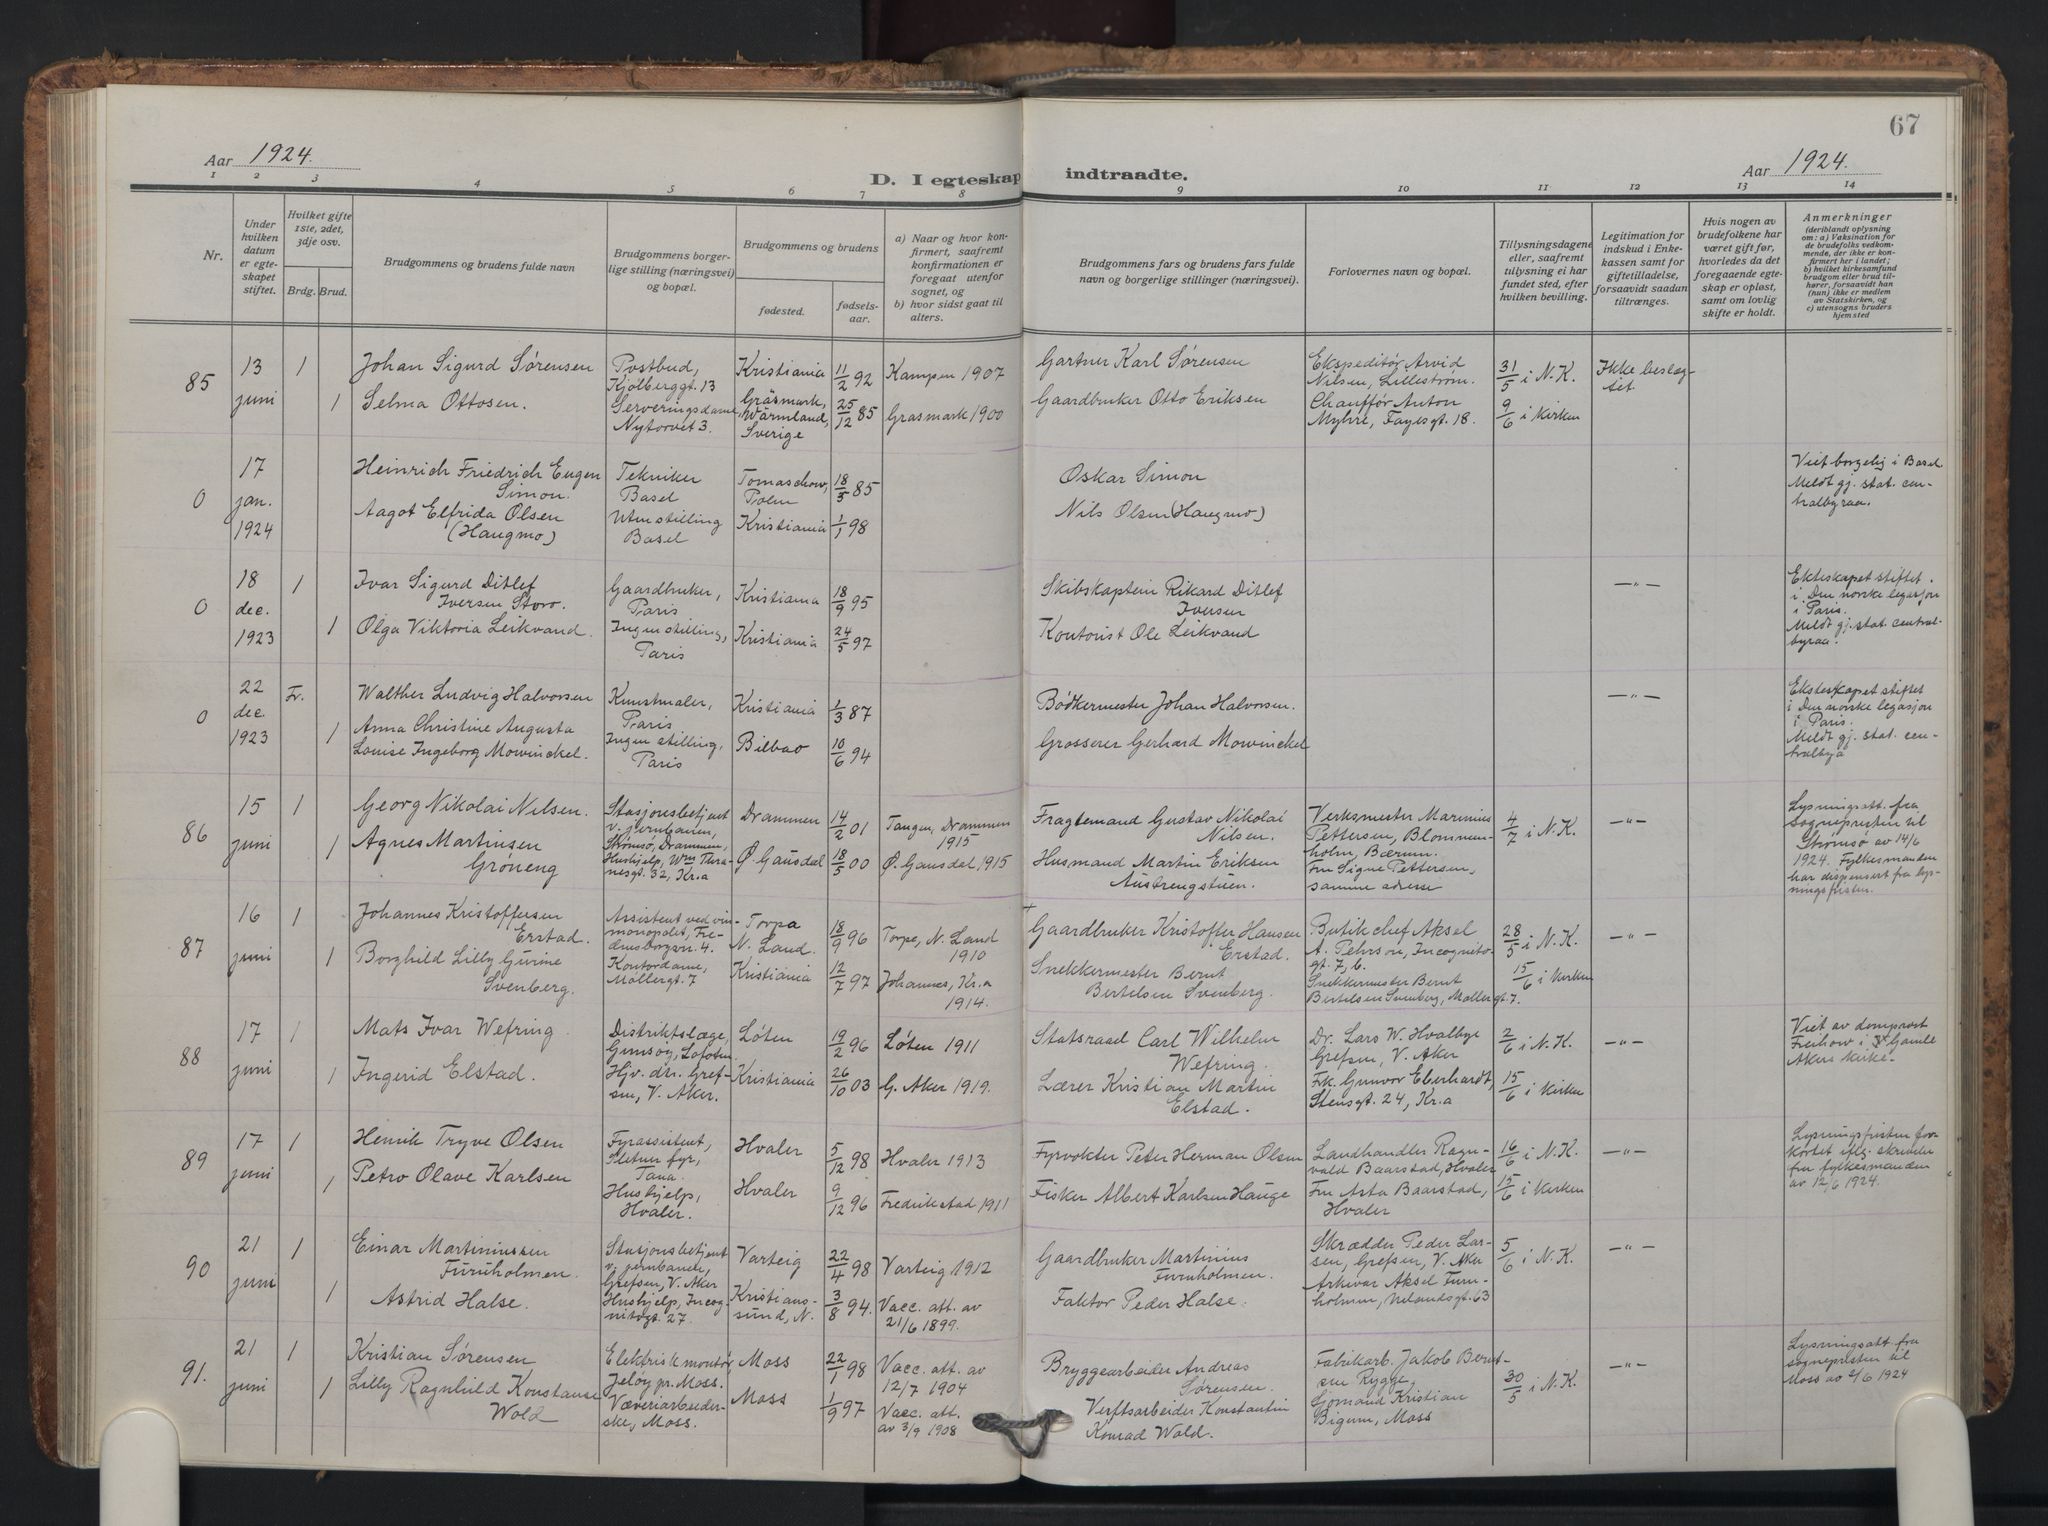 67
Aar 1924.
Aar 1924.
D. I egteskap indtraadte.
1 2 3 4 5 6 7 8 9 10 11 12 13 14
Nr.
Under hvilken datum er egte-skapet stiftet.
Hvilket gifte 1ste, 2det, 3dje osv.
Brdg. Brud.
Brudgommens og brudens fulde navn
Brudgommens borger-lige stilling (næringsvei) og bopæl.
Brudgommens og brudens
fødested.
fødsels-aar.
a) Naar og hvor kon-firmert, saafremt konfirmationen er foregaaet utenfor sognet, og
b) hvor sidst gaat til alters.
Brudgommens fars og brudens fars fulde navn og borgerlige stillinger (næringsvei).
Forlovernes navn og bopæl.
Tillysningsdagene eller, saafremt tillysning ei har fundet sted, efter hvilken bevilling.
Legitimation for indskud i Enke-kassen samt for giftetilladelse, forsaavidt saadan tiltrænges.
Hvis nogen av brudefolkene har været gift før, hvorledes da det foregaaende egte-skap er opløst, samt om lovlig skifte er holdt.
Anmerkninger (deriblandt oplysning om: a) Vaksination for de brudefolks vedkom-mende, der ikke er kon-firmert her i landet; b) hvilket kirkesamfund brudgom eller brud til-hører, forsaavidt han (hun) ikke er medlem av Statskirken, og c) utensogns bruders hjemsted
85
13 juni
1
Johan Sigurd Sørensen
Postbud, Kjølberggt. 13
Kristiania
11/2 92
Kampen 1907
Gartner Karl Sørensen
Ekspeditør Arvid Nilsen, Lillestrøm.
31/5 i N.K.
Ikke beslæg-tet.
1
Selma Ottosen.
Serveringsdame, Nytorvet 3.
Gräsmark, Wärmland, Sverige
25/12 85
Grasmark 1900
Gaardbruker Otto Eriksen
Chauffør Anton Myhre, Fayesgt. 18.
9/6 i Kirken
0
17 jan. 1924
Heinrich Friedrich Eugen Simon.
Tekniker Basel
Tomaschow, Polen
18/5 85
Oskar Simon
Viet borgelig i Basel. Meldt gj. stat. cen-tralbyraa.
Aagot Elfrida Olsen (Haugmo)
Uten stilling Basel
Kristiania
1/1 98
Nils Olsen (Haugmo)
0
18 dec. 1923
1
Ivar Sigurd Ditlef Iversen Storo.
Gaardbruker, Paris
Kristiania
18/9 95
Skibskaptein Rikard Ditlef Iversen
-"-
Ekteskapet stiftet i Den norske legasjon i Paris. Meldt gj. stat. central-byraa.
1
Olga Viktoria Leikvand.
Ingen stilling, Paris
Kristiania
24/5 97
Kontorist Ole Leikvand
0
22 dec. 1923
Fr.
Walther Ludvig Halvorsen
Kunstmaler, Paris
Kristiania
1/3 87
Bødkermester Johan Halvorsen.
-"-
Ekteskapet stiftet i Den norske legasjon i Paris. Meldt gj. stat. cen-tralbya
1
Anna Christine Augusta Louise Ingeborg Mowinckel.
Ingen stilling, Paris
Bilbao
10/6 94
Grosserer Gerhard Mowinckel
86
15 juni
1
Georg Nikolai Nilsen.
Stasjonsbetjent v. jernbanen, Strømsø, Drammen,
Drammen
14/2 01
Tangen, Drammen 1915
Fragtemand Gustav Nikolai Nilsen.
Verksmester Marinius Pettersen, Blommen-holm, Bærum.
4/7 i N.K.
-"-
Lysningsatt. fra sognepresten til Strømsø av 14/6 1924. Fylkesmanden har dispensert fra lys-ningsfristen.
1
Agnes Martinsen Grøneng
Hushjelp, Wm Thra-nesgt. 32, Kr.a
Ø. Gausdal
18/5 00
Ø. Gausdal 1915
Husmand Martin Eriksen Austrengstuen.
Fru Signe Pettersen, samme adresse
87
16 juni
1
Johannes Kristoffersen Erstad.
Assistent ved vin-monopolet, Fre-densborgvn. 4.
Torpa N. Land.
18/9 96
Torpe, N. Land 1910
Gaardbruker Kristoffer Hansen Erstad.
Butikchef Aksel A. Pehrson, Incognito-gt. 7, b.
28/5 i N.K.
-"-
1
Borghild Lilly Gurine Svenberg.
Kontordame, Møllergt. 7
Kristiania
12/7 97
Johannes, Kr.a 1914.
Snekkermester Bernt Bertelsen Svenberg.
Snekkermester Bernt Bertelsen Svenberg, Møllergt. 7.
15/6 i Kirken
88
17 juni
1
Mats Ivar Wefring.
Distriktslæge, Gimsøy, Lofoten
Løten
19/2 96
Løten 1911
Statsraad Carl Wilhelm Wefring.
Dr. Lars W. Hvalbye Grefsen, V. Aker
2/6 i N.K.
-"-
Viet av domprost Freihow i Gamle Akers kirke.
1
Ingerid Elstad.
Hjv. dtr. Gref-sen, V. Aker.
Kristiania
26/10 03
G. Aker 1919.
Lærer Kristian Martin Elstad.
Frk. Gunvor Eberhardt, Stensgt. 24, Kr.a
15/6 i Kirken
89
17 juni
1
Henrik Tryve Olsen
Fyrassistent, Sletnes fyr, Tana.
Hvaler
5/12 98
Hvaler 1913
Fyrvokter Peter Herman Olsen
Landhandler Ragn-vald Baarstad, Hvaler
16/6 i N.K.
-"-
Lysningsfristen for-kortet iflg. skrivelse fra fylkesmanden av 12/6 1924.
1
Petro Olave Karlsen
Hushjelp, Hvaler.
Hvaler
9/12 96
Fredrikstad 1911
Fisker Albert Karlsen Hauge
Fru Asta Baarstad, Hvaler
15/6 i Kirken
90
21 juni
1
Einar Martiniussen Furuholmen.
Stasjonsbetjent v. jernbanen, Grefsen, V. Aker
Varteig
22/4 98
Varteig 1912
Gaardbruker Martinius Furuholmen.
Skrædder Peder Lar-sen, Grefsen, V. Aker
5/6 i N.K.
-"-
1
Astrid Halse.
Hushjelp, Incog-nitogt. 27.
Kristians-sund, N.
3/8 94.
Vacc. att. av 21/6 1899.
Faktor Peder Halse.
Arkivar Aksel Furu-holmen, Uelandsgt. 63
91.
21 juni
1
Kristian Sørensen
Elektrisk montør, Jeløy pr. Moss.
Moss
22/1 98
Vacc. att. av 12/7 1904
Bryggearbeider Andreas Sørensen.
Fabrikarb. Jakob Bernt-sen Rygge,
30/5 i N.K.
-"-
Lysningsatt. fra sognepresten til Moss av 2/6 1924
1
Lilly Ragnhild Konstanse Wold
Væveriarbeider-ske, Moss.
Moss
1/9 97
Vacc. att. av 3/9 1908
Verftsarbeider Konstantin Konrad Wold.
Sjømand Kristian Bigum, Moss